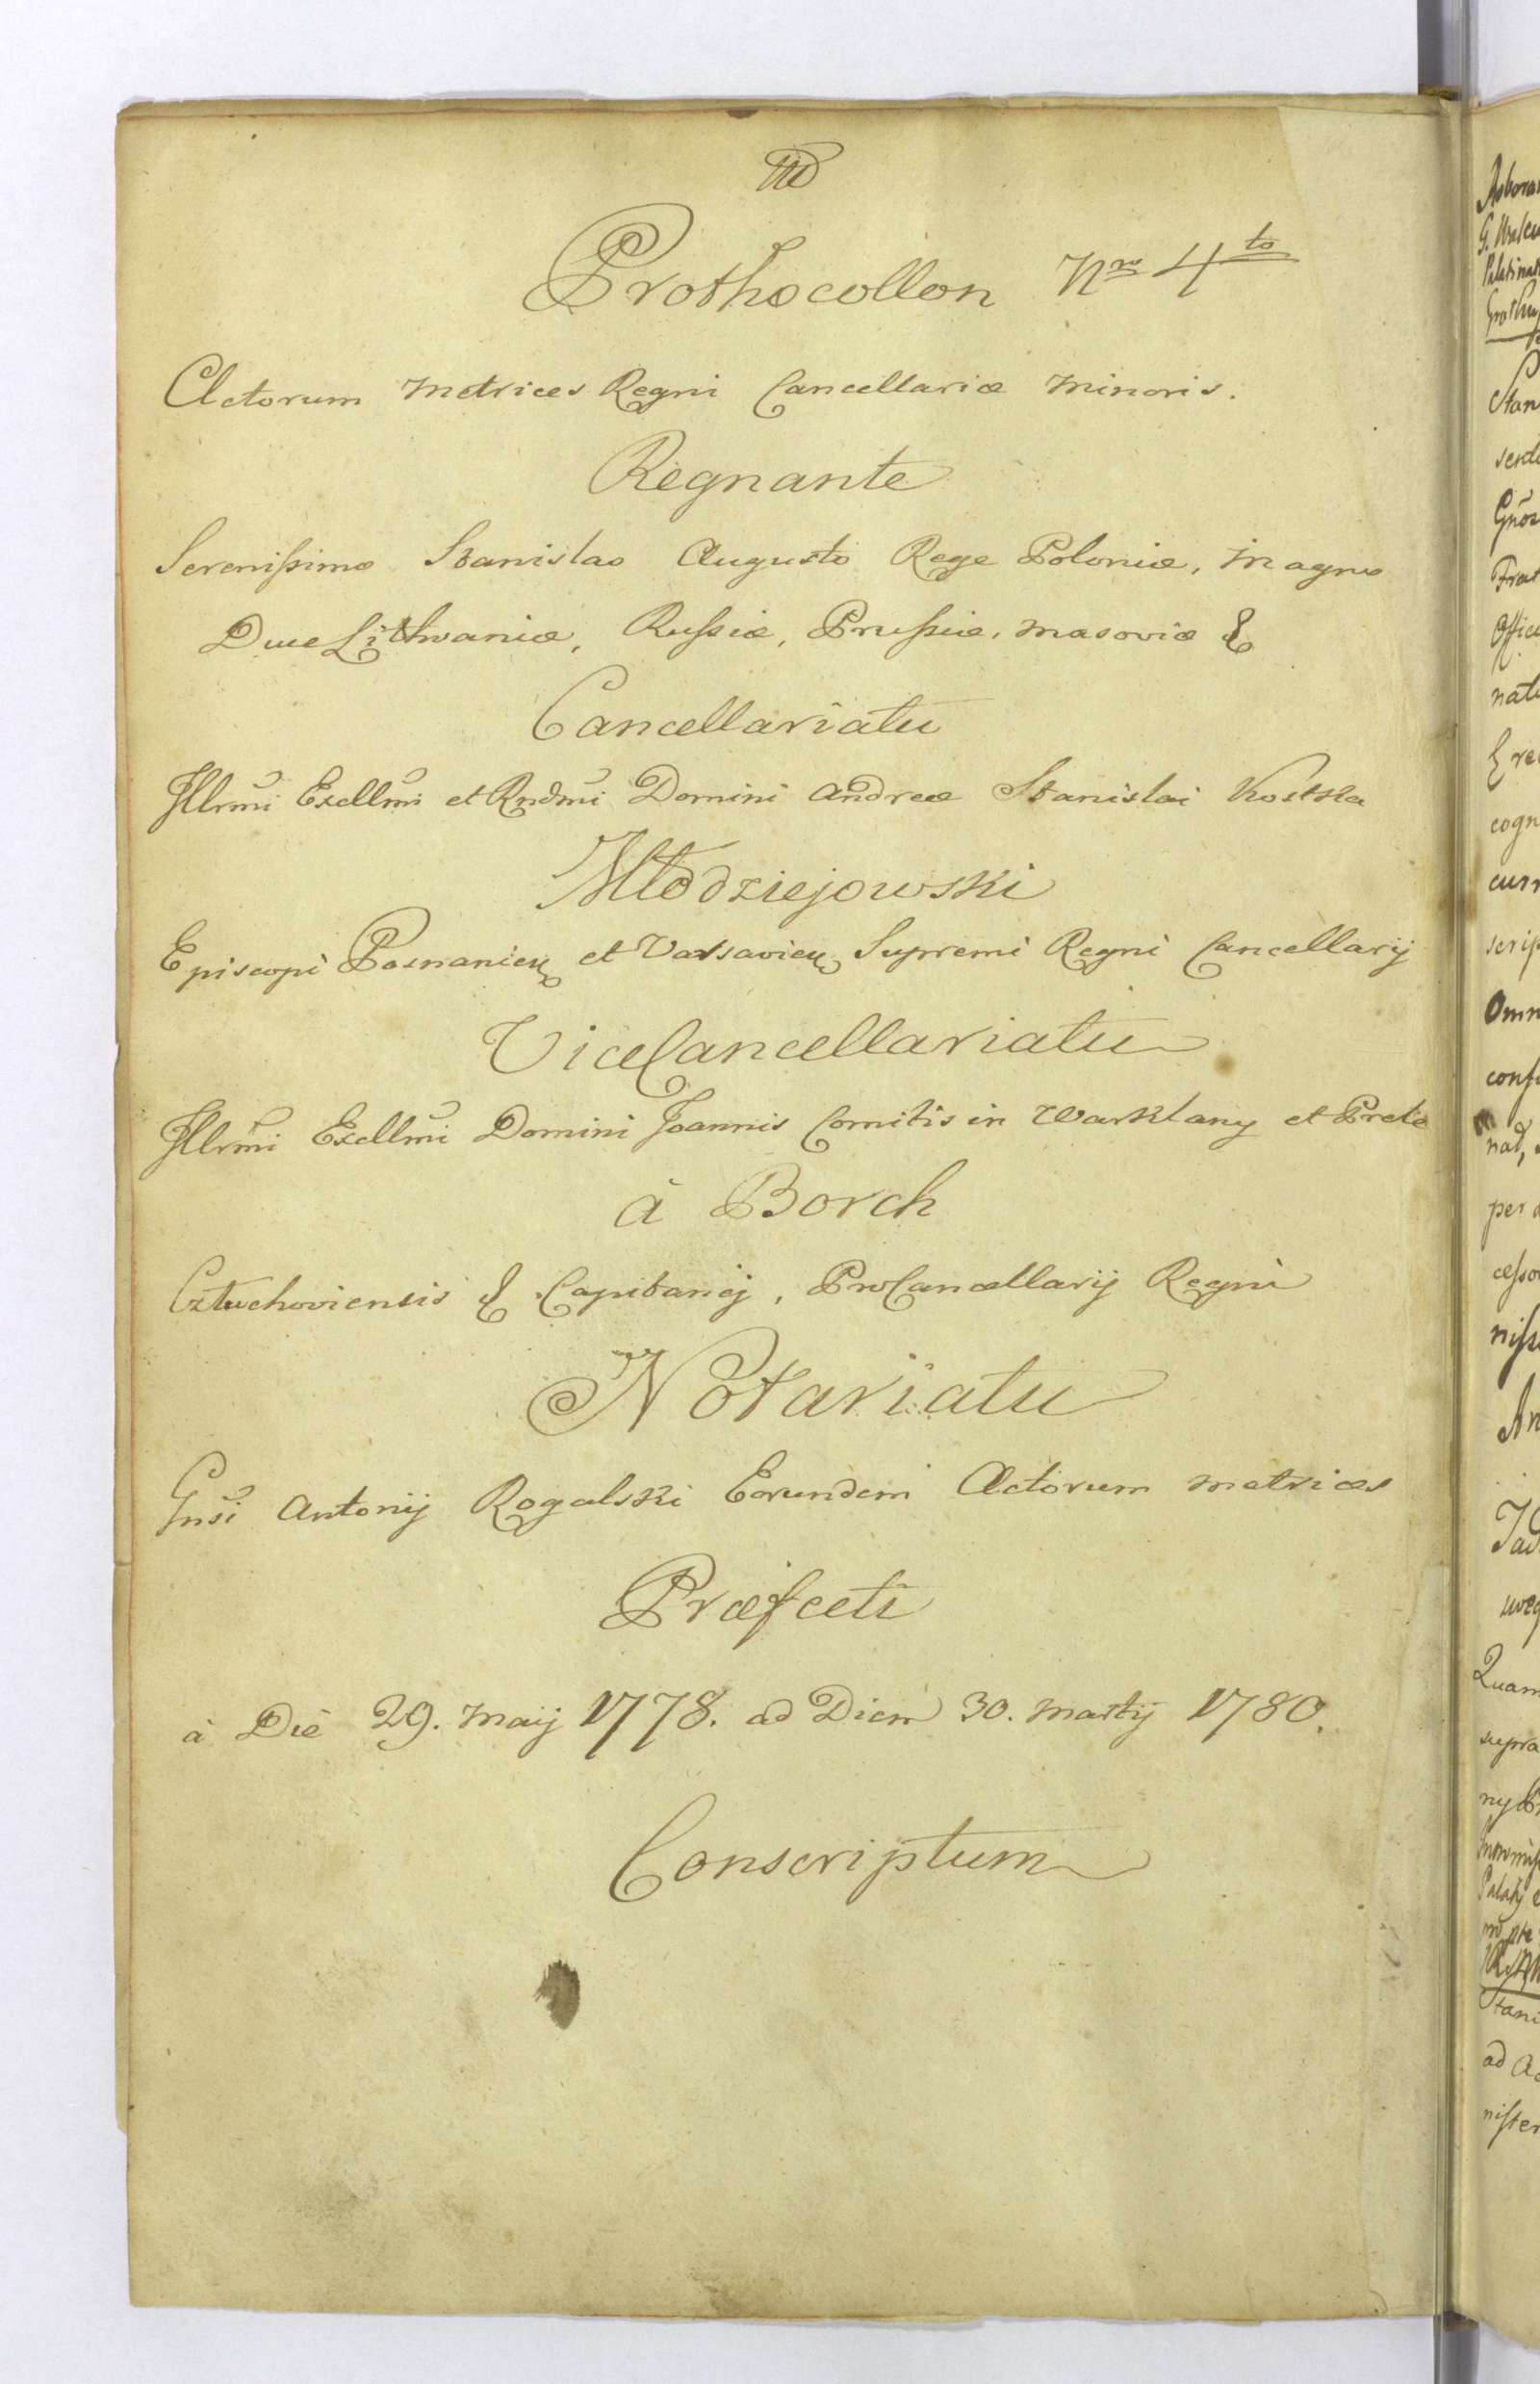 Prothocollon Nro 4to
Actorum Metrices Regni Cancellariæ Minoris.
Regnante
Serenißimo Stanislao Augusto Rege Poloniæ, Magno
Duce Lithvaniæ, Rußiæ, Prußiæ, Masoviæ &
Cancellariatu
Jllrm̃i Exellm̃i et Rndm̃i Domini Andreæ Stanislai Kostka
Młodziejowski
Episcopi Posnanien et Varsavien Supremi Regni Cancellarij
ViceCancellariatu
Jllrm̃i Exellm̃i Domini Joannis Comitis in Warklany et Prele
à Borch
Cztuchoviensis & Capitanej, ProCancellarij Regni
Notariatu
Gñsi Antonij Rogalski Eorundem Actorum Metrices
Præfecti
à Die 29. Maij 1778. ad Diem 30. Martij 1780.
Conscriptum
Stan
nat
cogn
curr
scrip
Omn
conf
per
Quam
supra